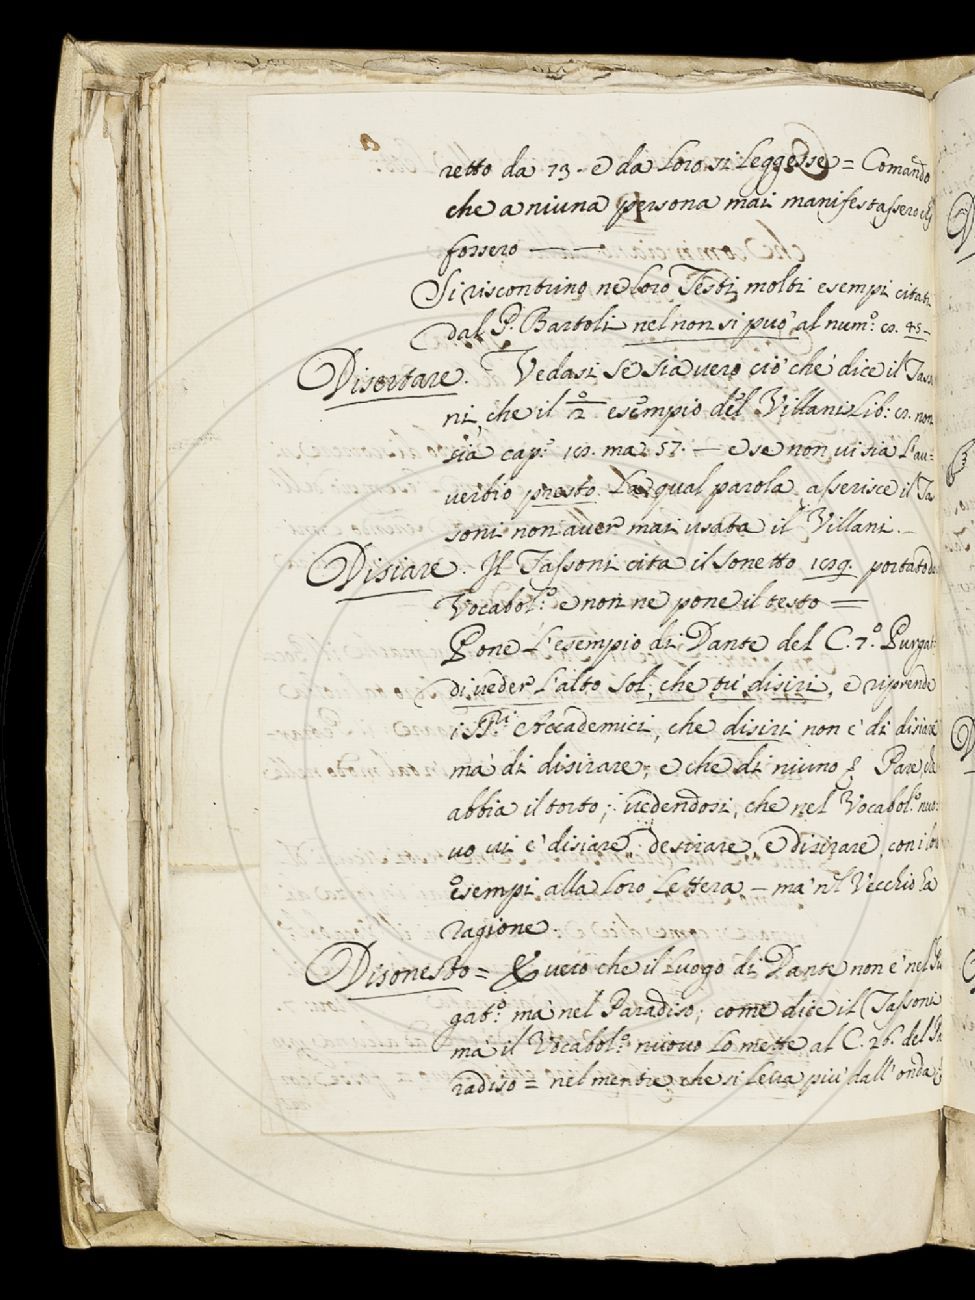 retto da 73. e da loro si leggesse = Comandò
che a niuna persona mai manifestassero chi
fossero — —
Si riscontrino ne loro Testi molti esempi citati
dal P. Bartoli nel non si può al num.º
Disertare. Vedasi se sia vero ciò che dice il Tasso
ni, che il 2º esempio del Villani Lib: non
sia cap. ma 57. — e se non vi sia l'av=
verbio presto. La qual parola asserisce il Tas
soni non aver mai usata il Villani. —
Disiare. Il Tassoni cita il sonetto portato da
Vocabol.º e non ne pone il testo =
Pone l'esempio di Dante del C. 7.º Purgat:
di veder l'alto Sol, che tu disiri, e riprende
i Pri Accademici, che disiri non è di disiare
mà di disirare, e che di niuno è Pare, che
abbia il torto, vedendosi, che nel Vocabol.º nuo:
vo vi è disiare, desirare, e disirare, con i loro
esempi alla loro Lettera — mà nel Vecchio ha
ragione.
Disonesto = È vero che il luogo di Dante non è nel Pur
gat.º mà nel Paradiso, come dice il Tassoni
mà il Vocabol.º nuovo lo mette al C. 26. del Pa
radiso = nel mentre che si leva più dall'onda